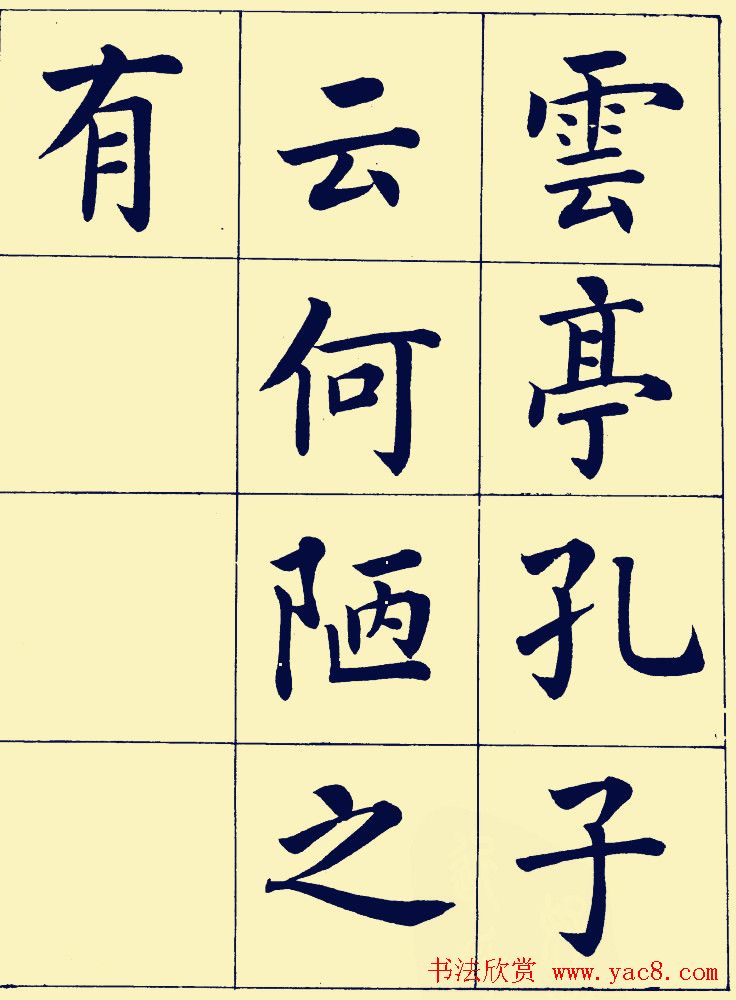 雲亭孔子
云何陋之
有
书法欣赏 www.yac8.com